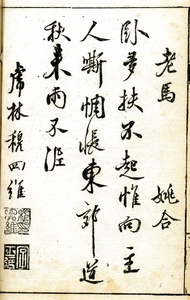 老馬
姚合
臥夢扶不起惟向主
人嘶惆悵東郊道
秋來雨不泥
虎林穆四維